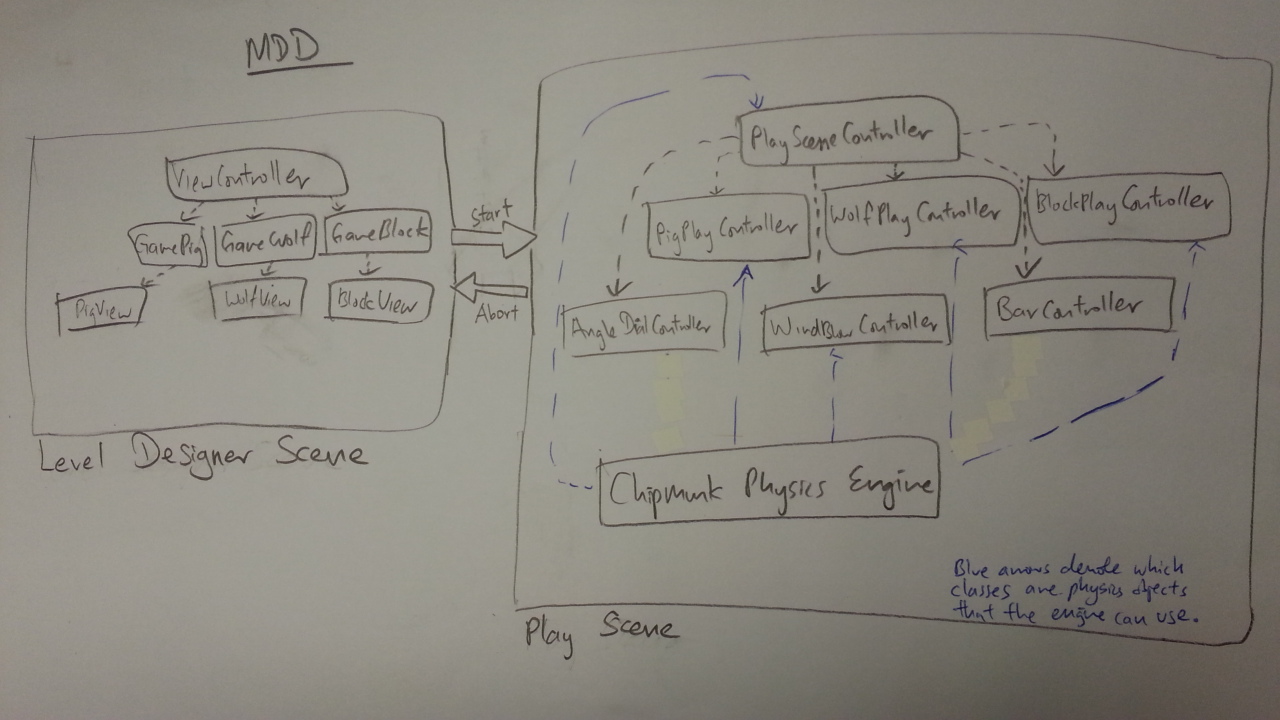 MDD
ViewController
GamePig
GameWolf
GameBlock
PigView
WolfView
BlockView
Level Designer Scene
start
Abort
PlaySceneController
PigPlayController
WolfPlayController
BlockPlayController
AngleDialController
WindBlowController
BarController
Chipmunk Physics Engine
Blue arrows denote which
classes are physics objects
that the engine can use.
Play Scene